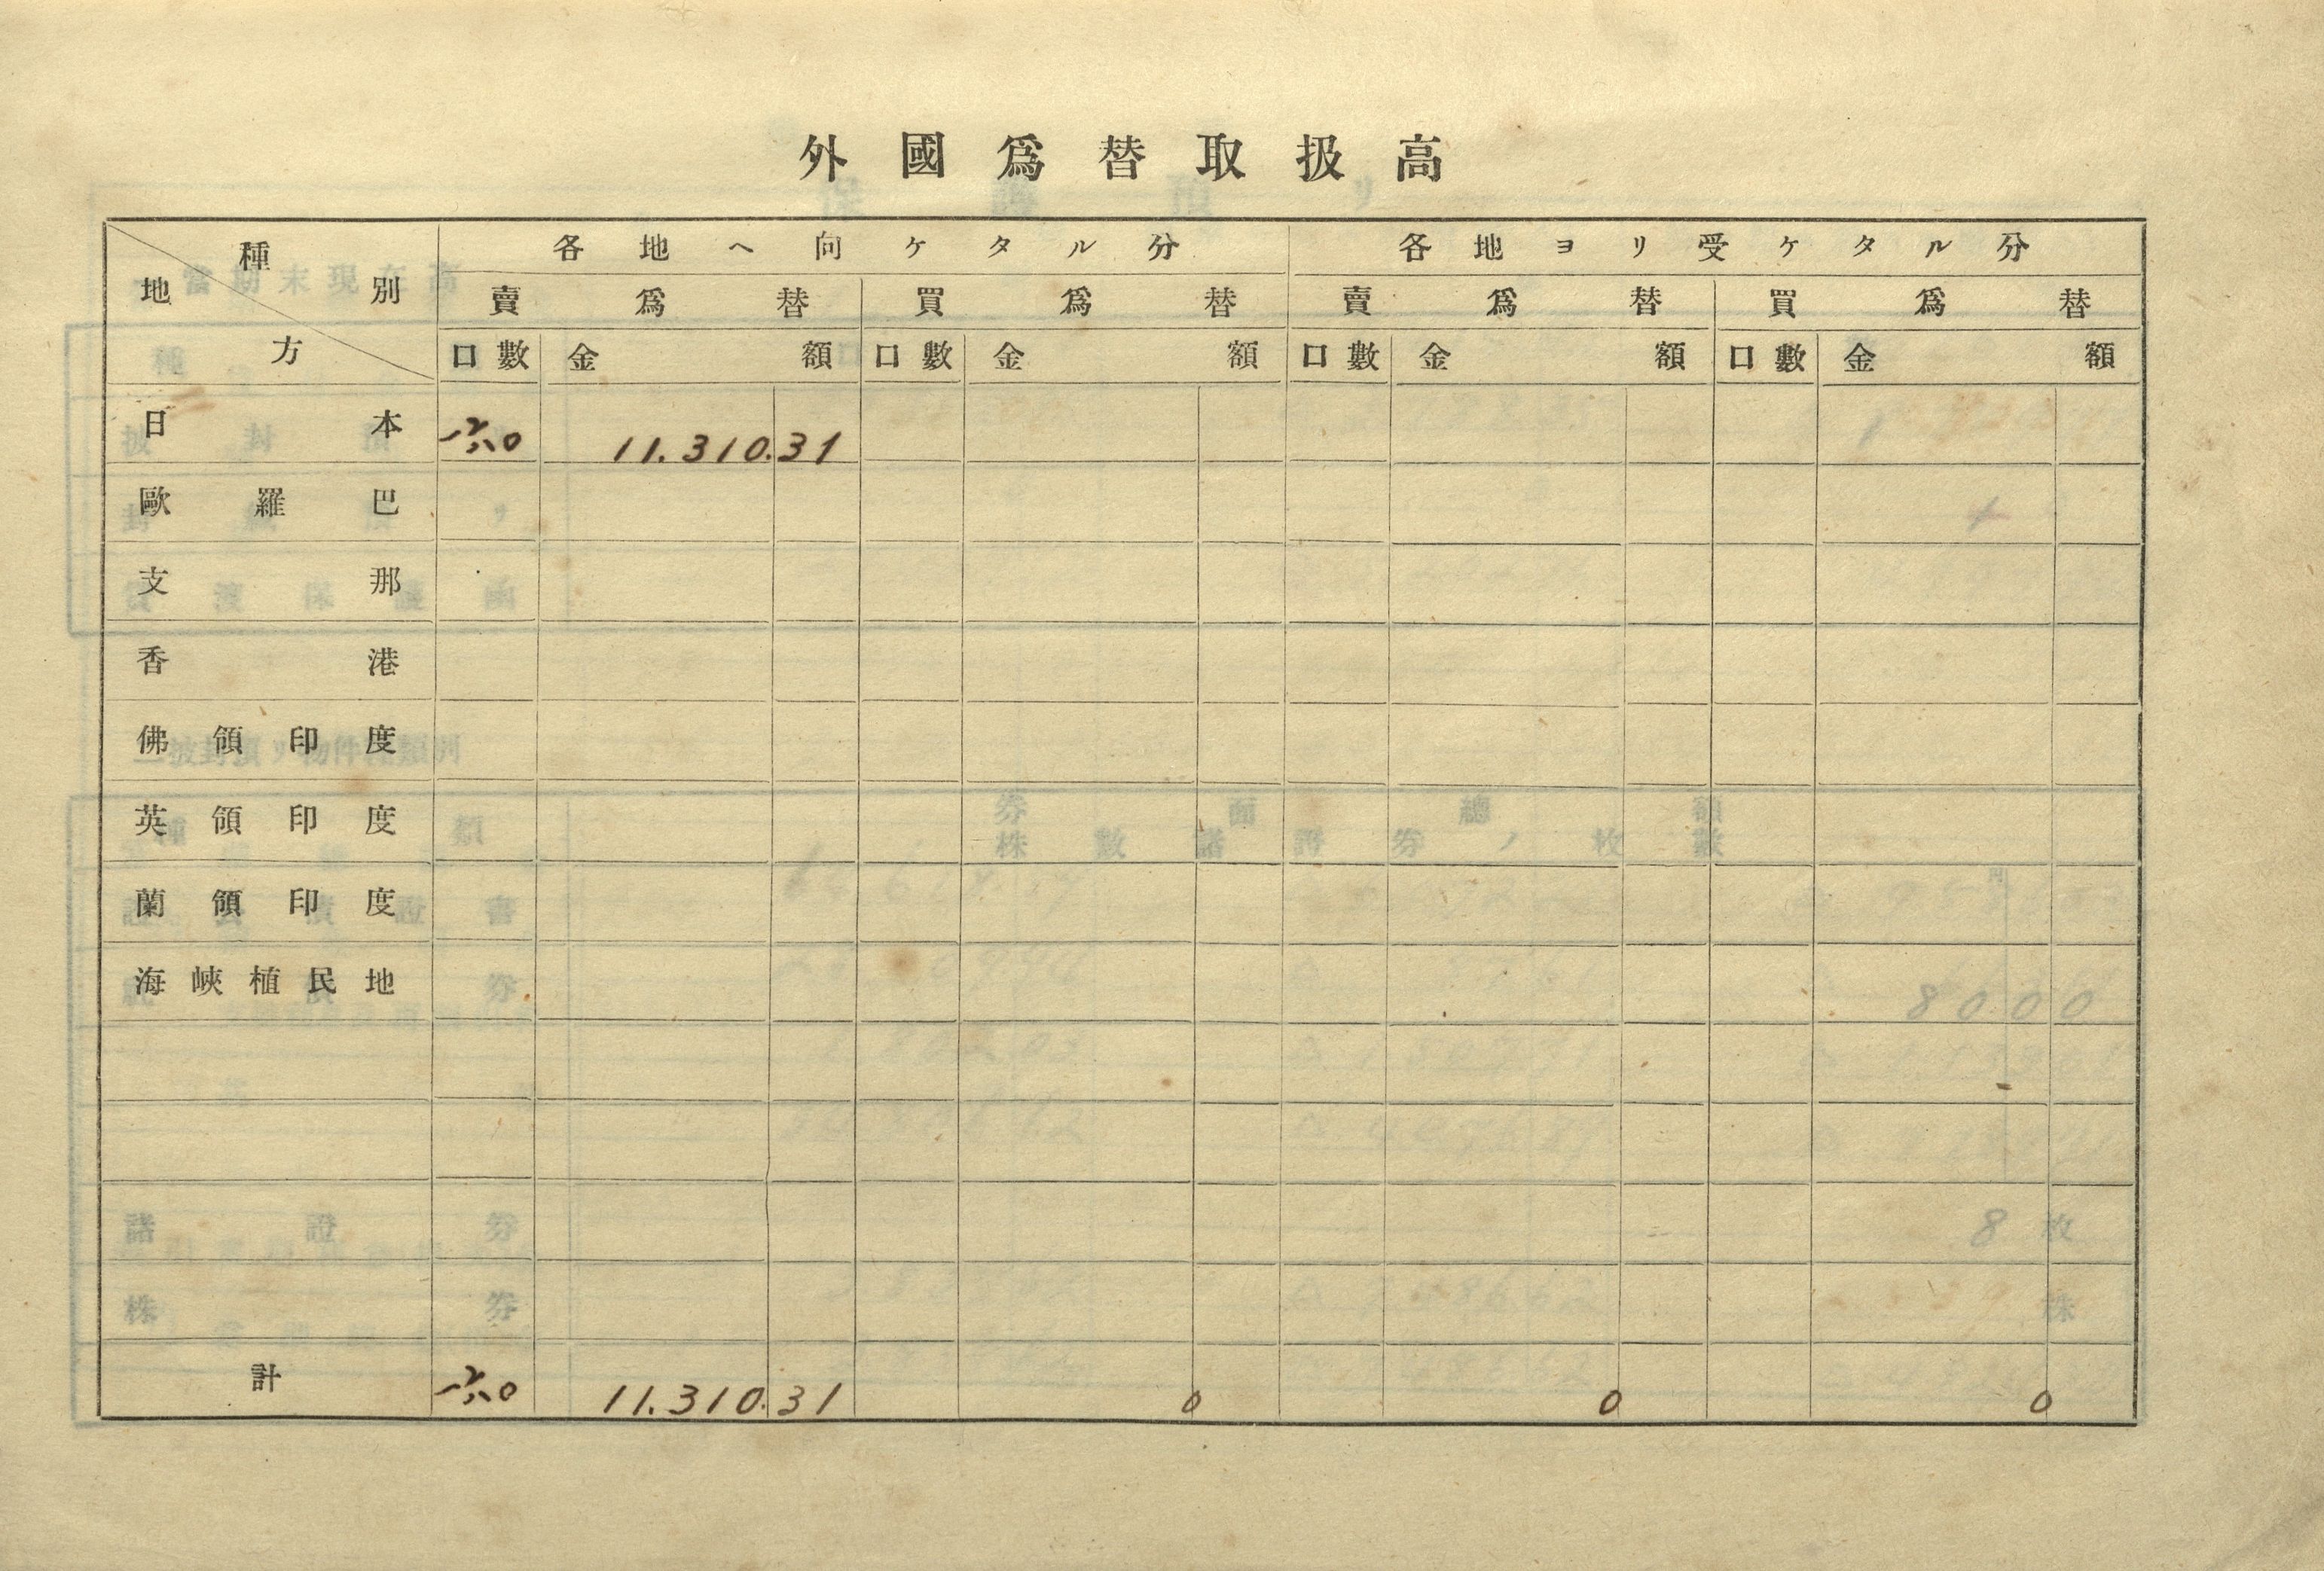 外國爲替取扱高
種別 地方 各地ヘ向ケタル分 各地ヨリ受ケタル分
賣爲替 買爲替 賣爲替 買爲替
口數 金額 口數 金額 口數 金額 口數 金額
日本 一六0 11.310.31
歐羅巴
支那
香港
佛領印度
英領印度
蘭領印度
海峽植民地
計 一六0 11.310.31 0 0 0